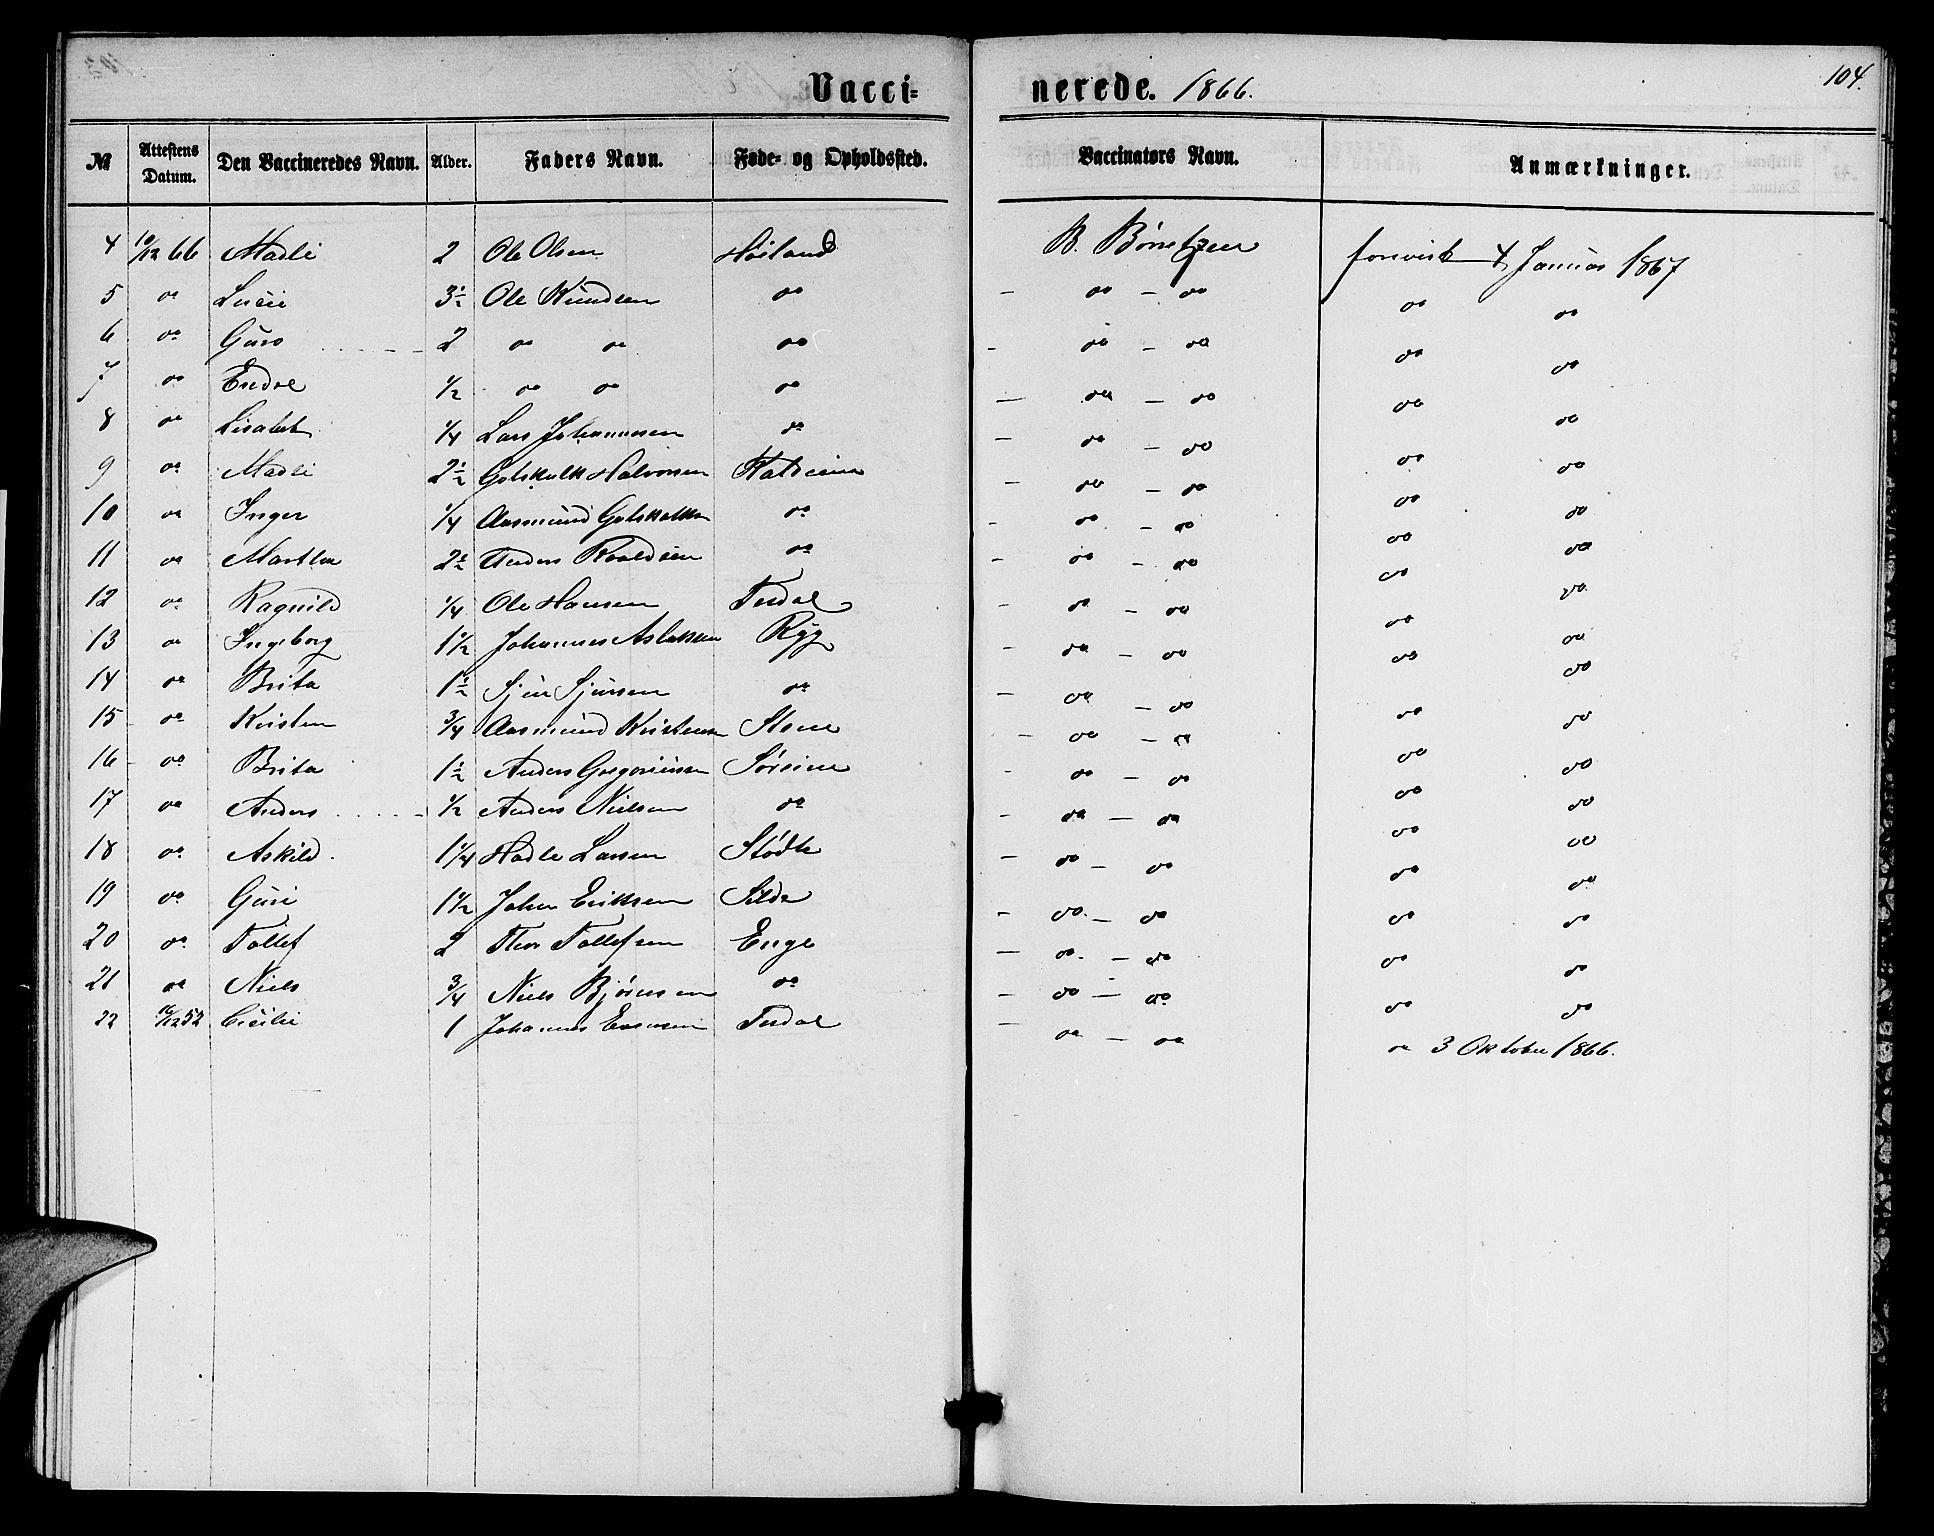 Vacci= nerede. 1866. 104.
№ Attestens Datum. Den Vaccineredes Navn. Alder. Faders Navn. Føde= og Opholdssted. Vaccinators Navn. Anmærkninger.
4 10/12 66 Madli 2 Ole Olsen Høiland B. Børretzen forevist 4 Januar 1867
5 do Lusie 3½ Ole Knudsen do - do - do do do
6 do Guro 2 do do do - do - do do do
7 do Endre ½ do do do - do - do do do
8 do Lisabet ¼ Lars Johannesen do - do - do do do
9 do Madli 2½ Gotskalk Halvorsen - do - do do do
10 do Inger ¼ Aasmund Gotskalks do - do - do do do
11 do Martha 2½ Anders Roaldsen do - do - do do do
12 do Ragnild ¼ Ole Hansen Tudal - do - do do do
13 do Ingeborg 1½ Johannes Aslaksen Ryg - do - do do do
14 do Brita 1½ Sjur Sjursen do - do - do do do
15 do Kristen ¾ Aasmund Kristensen Stene - do - do do do
16 do Brita 1½ Anders Gregoriussen Søreime - do - do do do
17 do Anders ½ Anders Nielsen do - do - do do do
18 do Askild 1¼ Hadle Larsen Stødle - do - do do do
19 do Guri 1½ Johan Eriksen Silde - do - do do do
20 do Tollef 2 Thor Tollefsen Enge - do - do do do
21 do Niels ¾ Niels Bjørnsen do - do - do do do
22 16/12 52 Cicilie 1 Johannes Evensen Tudal - do - do do 3 Oktober 1866.